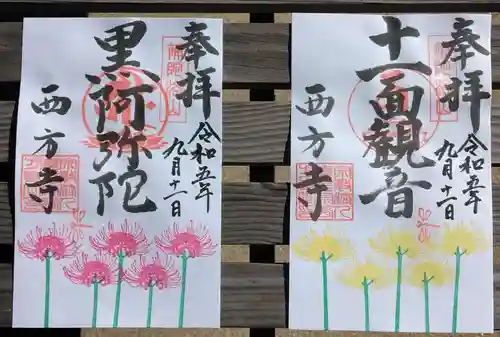 奉拝
令和五年
九月十一日
黒阿弥陀
西方寺
奉拝
令和五年
九月十一日
十一面観音
西方寺